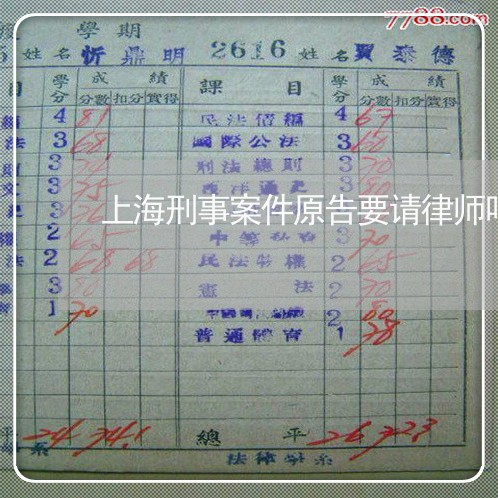 7788.com
度 學期
5 姓名 忻鼎明 2616 姓名 賈泰德
目 學分 成績 課目 學分 成績
分數 扣分 實得 分數 扣分 實得
編 4 81 民法債編 4 67
法 3 68 國際公法 3 60
則 3 刑法總則 3 70
文 3 75 西洋通史 3 80
史 3 3
上海刑事案件原告要请律师吗
權 2 65 3 70
法 2 68 68 民法物權 2 65
3 80 憲法 3 70
育 1 70 2 80
普通體育 1 78
平 24 74.1 總平 26 72.3
系 法律學系